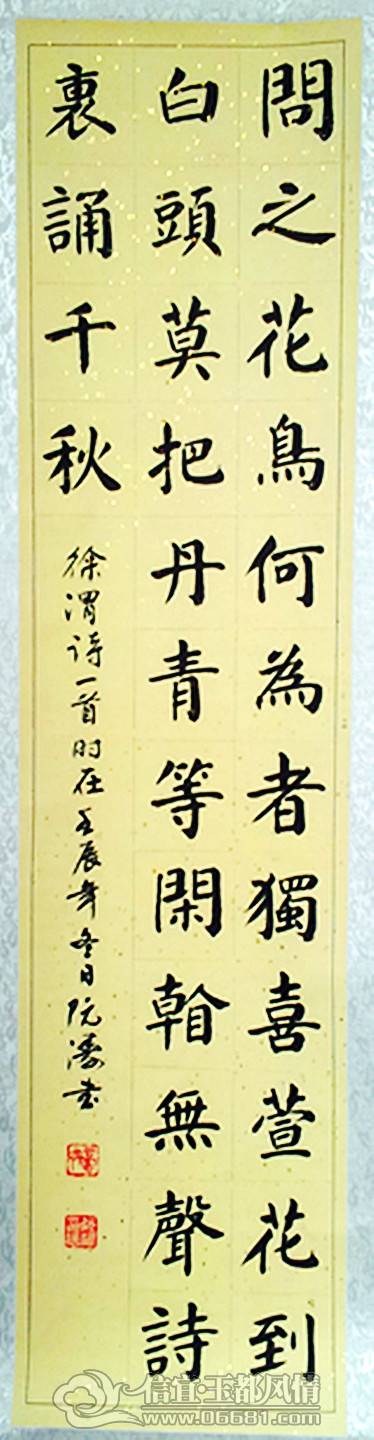 問之花鳥何為者獨喜萱花到
白頭莫把丹青等閑看無聲詩
裏誦千秋
徐渭诗一首时在壬辰年冬日阮涛书
信宜·玉都风情
www.06681.com